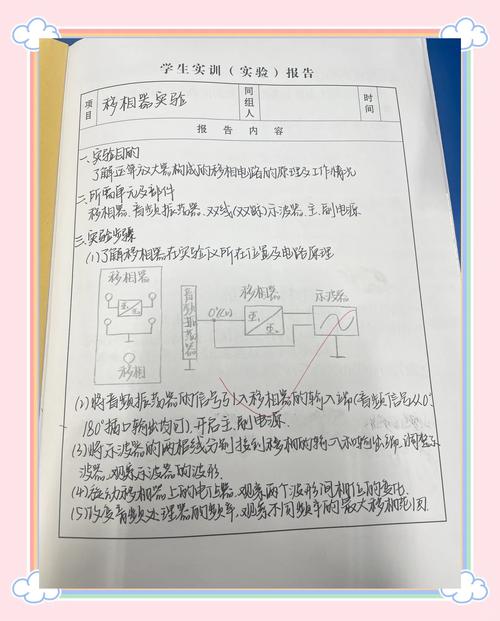 学生实训(实验)报告
项目 移相器实验 同组人 时间
报告内容
一.实验目的
了解运算放大器构成的移相电路的原理及工作情况
二.所需单元及部件
移相器.音频振荡器.双线(双踪)示波器.主.副电源
三.实验步骤
(1)了解移相器在实验仪所在位置及电路原理
移相器 移相器 示波器
音频振荡器 0°(0)
移相
(2)将音频振荡器的信号引入移相器的输入端(音频信号从0°
180°插口输出均可).开启主.副电源.
(3)将示波器的两根线分别接到移相的输入和输出端.调整示
波器.观察示波器的波形.
(4)旋动移相器上的电位器.观察两个波形间相位的变化.
(5)改变音频处理器的频率,观察不同频率的最大移相范围.